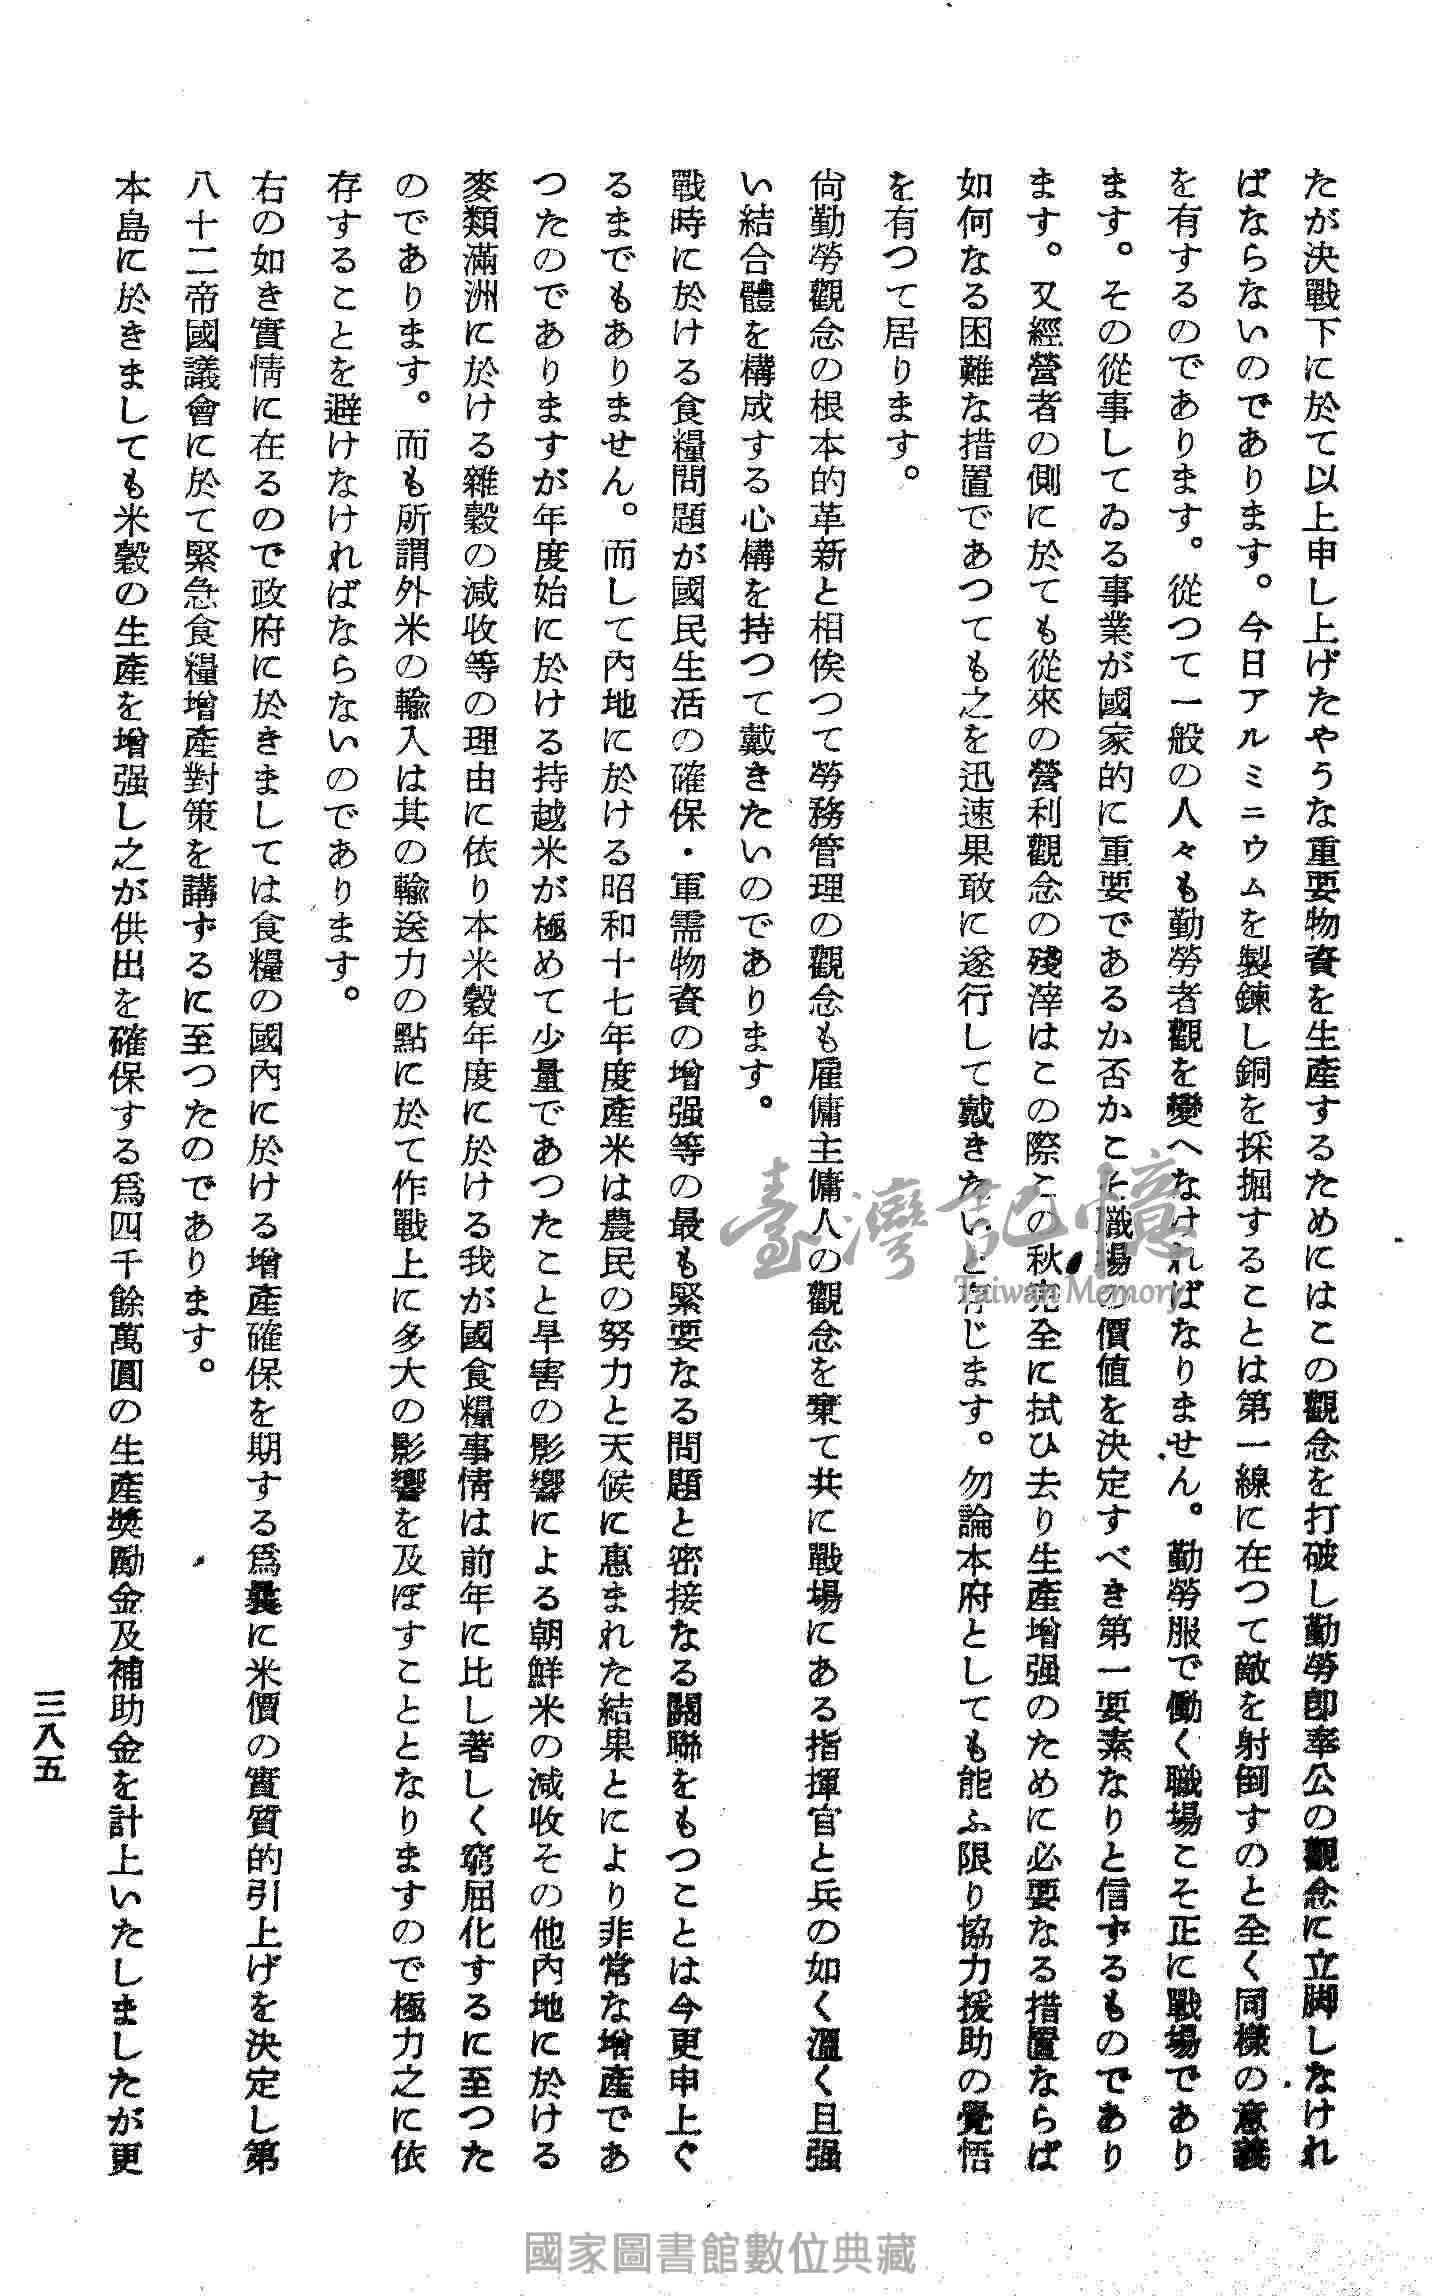 たが決戰下に於て以上申し上げたやうな重要物資を生產するためにはこの觀念を打破し勤勞卽奉公の觀念に立脚しなけれ
ばならないのであります。今日アルミニウムを製鍊し銅を採掘することは第一線に在つて敵を射倒すのと全く同樣の意義
を有するのであります。從つて一般の人々も勤勞者觀を變へなければなりません。勤勞服で働く職場こそ正に戰場であり
ます。その從事してゐる事業が國家的に重要であるか否かこそ職場の價値を決定すべき第一要素なりと信ずるものであり
ます。又經營者の側に於ても從來の營利觀念の殘滓はこの際この秋完全に拭ひ去り生產增强のために必要なる措置ならば
如何なる困難な措置であつても之を迅速果敢に遂行して戴きたいと存じます。勿論本府としても能ふ限り協力援助の覺悟
を有つて居ります。
尙勤勞觀念の根本的革新と相俟つて勞務管理の觀念も雇傭主傭人の觀念を棄て共に戰場にある指揮官と兵の如く溫く且强
い結合體を構成する心構を持つて戴きたいのであります。
戰時に於ける食糧問題が國民生活の確保・軍需物資の增强等の最も緊要なる問題と密接なる關聯をもつことは今更申上ぐ
るまでもありません。而して內地に於ける昭和十七年度產米は農民の努力と天候に惠まれた結果とにより非常な增產であ
つたのでありますが年度始に於ける持越米が極めて少量であつたこと旱害の影響による朝鮮米の減收その他內地に於ける
麥類滿洲に於ける雜穀の減收等の理由に依り本米穀年度に於ける我が國食糧事情は前年に比し著しく窮屈化するに至つた
のであります。而も所謂外米の輸入は其の輸送力の點に於て作戰上に多大の影響を及ぼすこととなりますので極力之に依
存することを避けなければならないのであります。
右の如き實情に在るので政府に於きましては食糧の國內に於ける增產確保を期する爲曩に米價の實質的引上げを決定し第
八十二帝國議會に於て緊急食糧增產對策を講ずるに至つたのであります。
本島に於きましても米穀の生產を增强し之が供出を確保する爲四千餘萬圓の生產奬勵金及補助金を計上いたしましたが更
三八五
臺灣記憶
Taiwan Memory
國家圖書館數位典藏